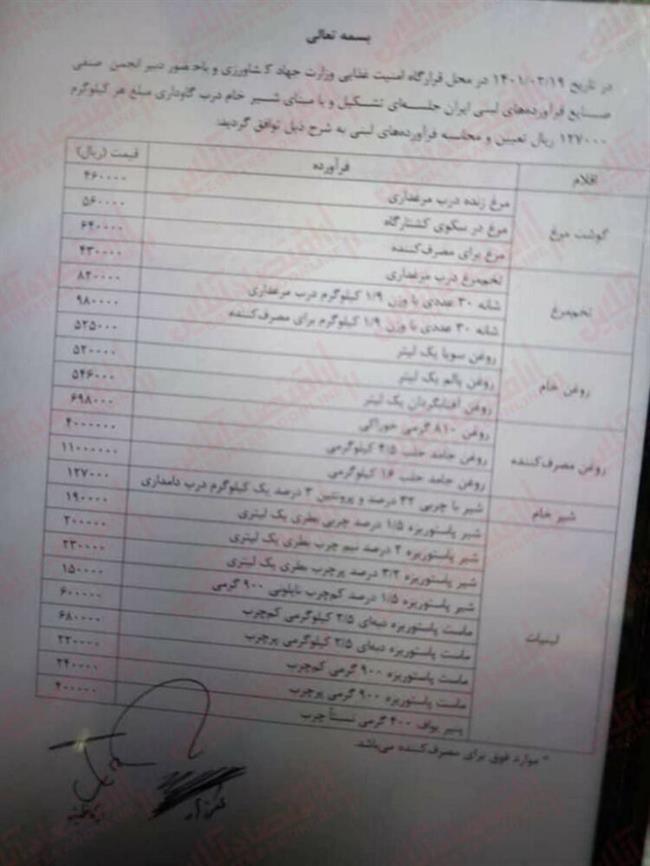 بسمه تعالی
در تاریخ ۱۴۰۱/۰۲/۱۹ در محل قرارگاه امنیت غذایی وزارت جهاد کشاورزی و باحضور دبیر انجمن صنفی
صنایع فرآورده‌های لبنی ایران جلسه‌ای تشکیل و با مبنای شیر خام درب گاوداری مبلغ هر کیلوگرم
۱۲۷۰۰۰ ریال تعیین و محاسبه فرآورده‌های لبنی به شرح ذیل توافق گردید:
اقلام فرآورده قیمت (ریال)
گوشت مرغ
مرغ زنده درب مرغداری ۴۶۰۰۰۰
مرغ در سکوی کشتارگاه ۵۶۰۰۰۰
مرغ برای مصرف‌کننده ۶۴۰۰۰۰
تخم‌مرغ
تخم‌مرغ درب مرغداری ۴۳۰۰۰۰
شانه ۳۰ عددی با وزن ۱/۹ کیلوگرم درب مرغداری ۸۲۰۰۰۰
شانه ۳۰ عددی با وزن ۱/۹ کیلوگرم برای مصرف‌کننده ۹۸۰۰۰۰
روغن خام
روغن سویا یک لیتر ۵۲۵۰۰۰
روغن پالم یک لیتر ۵۲۰۰۰۰
روغن آفتابگردان یک لیتر ۵۴۶۰۰۰
روغن مصرف‌کننده
روغن ۸۱۰ گرمی خوراکی ۶۹۸۰۰۰
روغن جامد حلب ۴/۵ کیلوگرمی ۴۰۰۰۰۰۰
روغن جامد حلب ۱۶ کیلوگرمی ۱۱۰۰۰۰۰۰
شیر خام
شیر با چربی ۳۲ درصد و پروتئین ۳ درصد یک کیلوگرم درب دامداری ۱۲۷۰۰۰
لبنیات
شیر پاستوریزه ۱/۵ درصد چربی بطری یک لیتری ۱۹۰۰۰۰
شیر پاستوریزه ۲ درصد نیم چرب بطری یک لیتری ۲۰۰۰۰۰
شیر پاستوریزه ۳/۲ درصد پرچرب بطری یک لیتری ۲۳۰۰۰۰
شیر پاستوریزه ۱/۵ درصد کم‌چرب نایلونی ۹۰۰ گرمی ۱۵۰۰۰۰
ماست پاستوریزه دبه‌ای ۲/۵ کیلوگرمی کم‌چرب ۶۰۰۰۰۰
ماست پاستوریزه دبه‌ای ۲/۵ کیلوگرمی پرچرب ۶۸۰۰۰۰
ماست پاستوریزه ۹۰۰ گرمی کم‌چرب ۲۲۰۰۰۰
ماست پاستوریزه ۹۰۰ گرمی پرچرب ۲۴۰۰۰۰
پنیر یواف ۴۰۰ گرمی نسبتاً چرب ۴۰۰۰۰۰
* موارد فوق برای مصرف‌کننده می‌باشد.
اقتصاد آنلاین